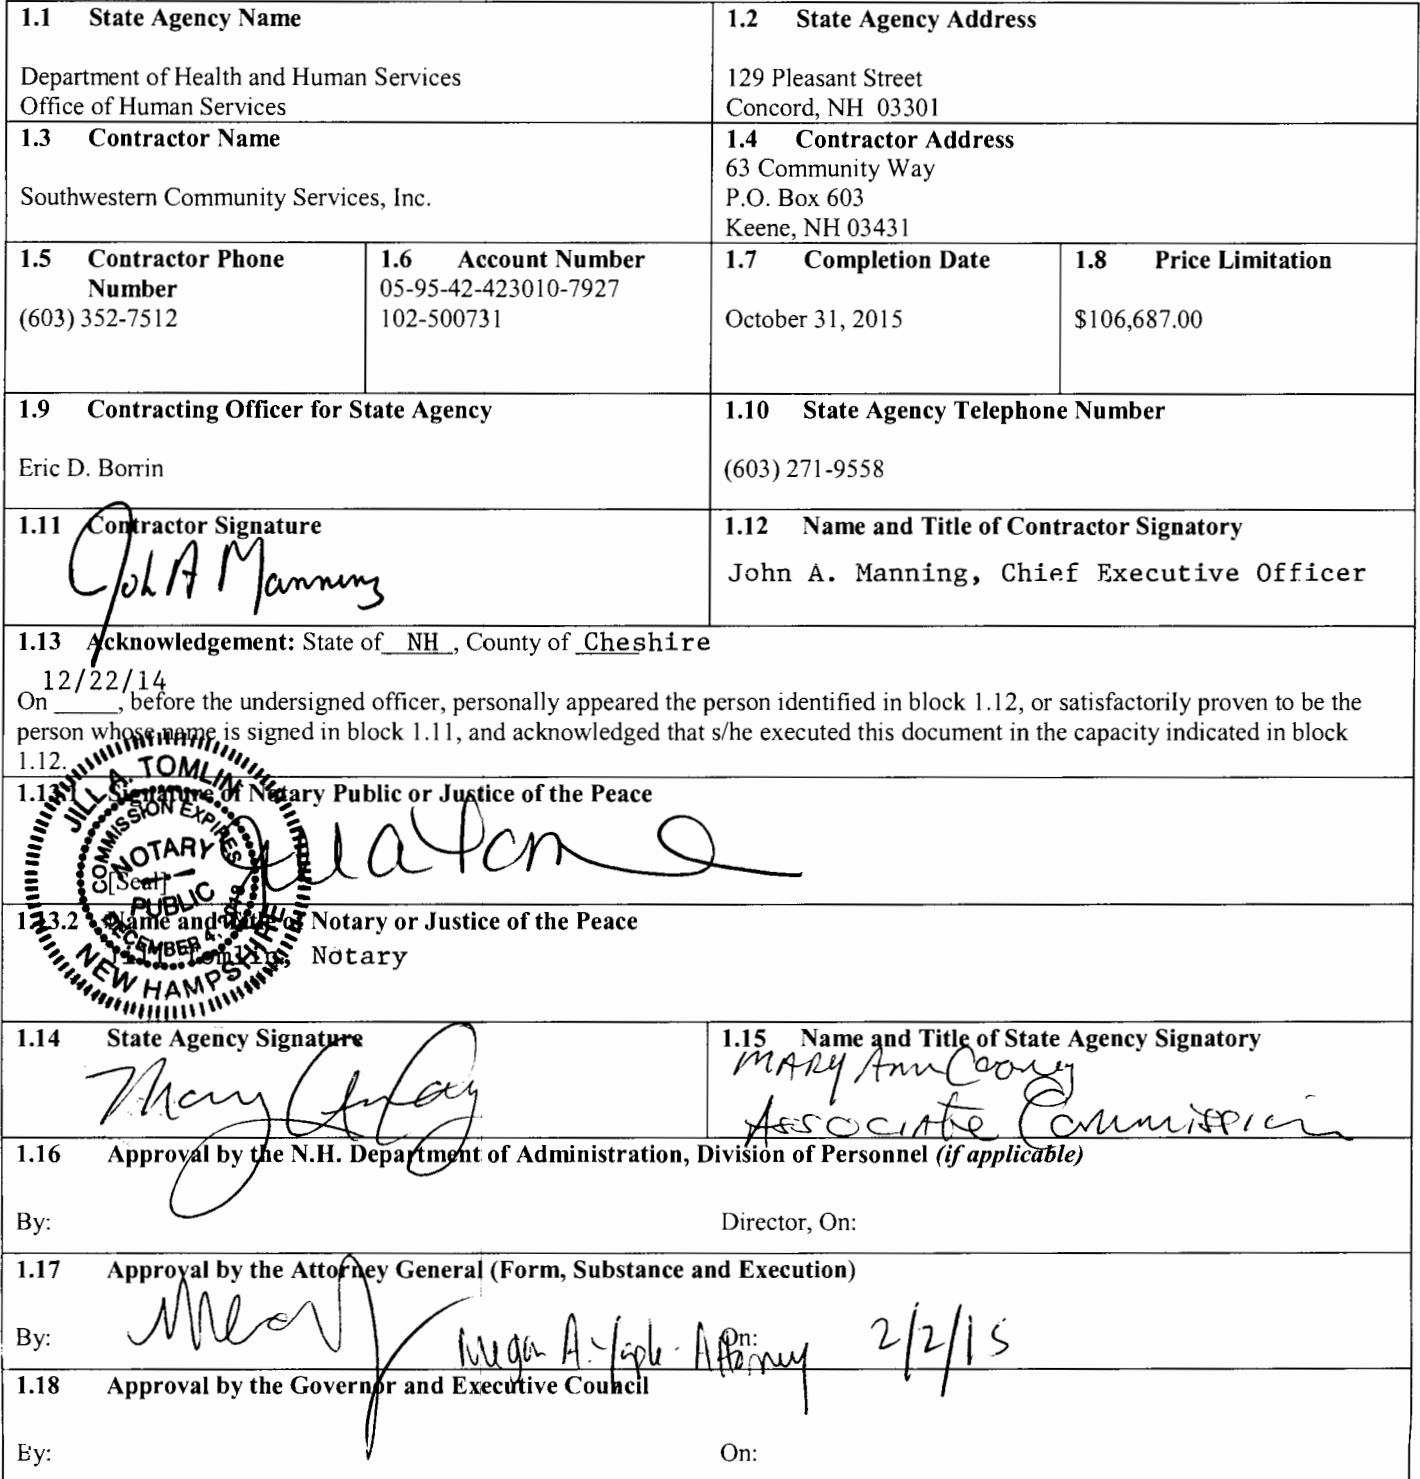 1.1 State Agency Name
1.2 State Agency Address
Department of Health and Human Services
Office of Human Services
129 Pleasant Street
Concord, NH 03301
1.3 Contractor Name
1.4 Contractor Address
Southwestern Community Services, Inc.
63 Community Way
P.O. Box 603
Keene, NH 03431
1.5 Contractor Phone
Number
(603) 352-7512
1.6 Account Number
05-95-42-423010-7927
102-500731
1.7 Completion Date
October 31, 2015
1.8 Price Limitation
$106,687.00
1.9 Contracting Officer for State Agency
Eric D. Borrin
1.10 State Agency Telephone Number
(603) 271-9558
1.11 Contractor Signature
John A Manning
1.12 Name and Title of Contractor Signatory
John A. Manning, Chief Executive Officer
1.13 Acknowledgement: State of NH, County of Cheshire
12/22/14
On _____, before the undersigned officer, personally appeared the person identified in block 1.12, or satisfactorily proven to be the
person whose name is signed in block 1.11, and acknowledged that s/he executed this document in the capacity indicated in block
1.12.
1.13.1 Signature of Notary Public or Justice of the Peace
[Seal]
JILL A. TOMLIN
COMMISSION EXPIRES
NOTARY
PUBLIC
DECEMBER 4,
NEW HAMPSHIRE
1.13.2 Name and Title of Notary or Justice of the Peace
Jill Tomlin, Notary
1.14 State Agency Signature
1.15 Name and Title of State Agency Signatory
MARY Ann Cooney
Associate Commission
1.16 Approval by the N.H. Department of Administration, Division of Personnel (if applicable)
By:
Director, On:
1.17 Approval by the Attorney General (Form, Substance and Execution)
By:
Megan A. Yaple - Attorney
On:
2/2/15
1.18 Approval by the Governor and Executive Council
By:
On: